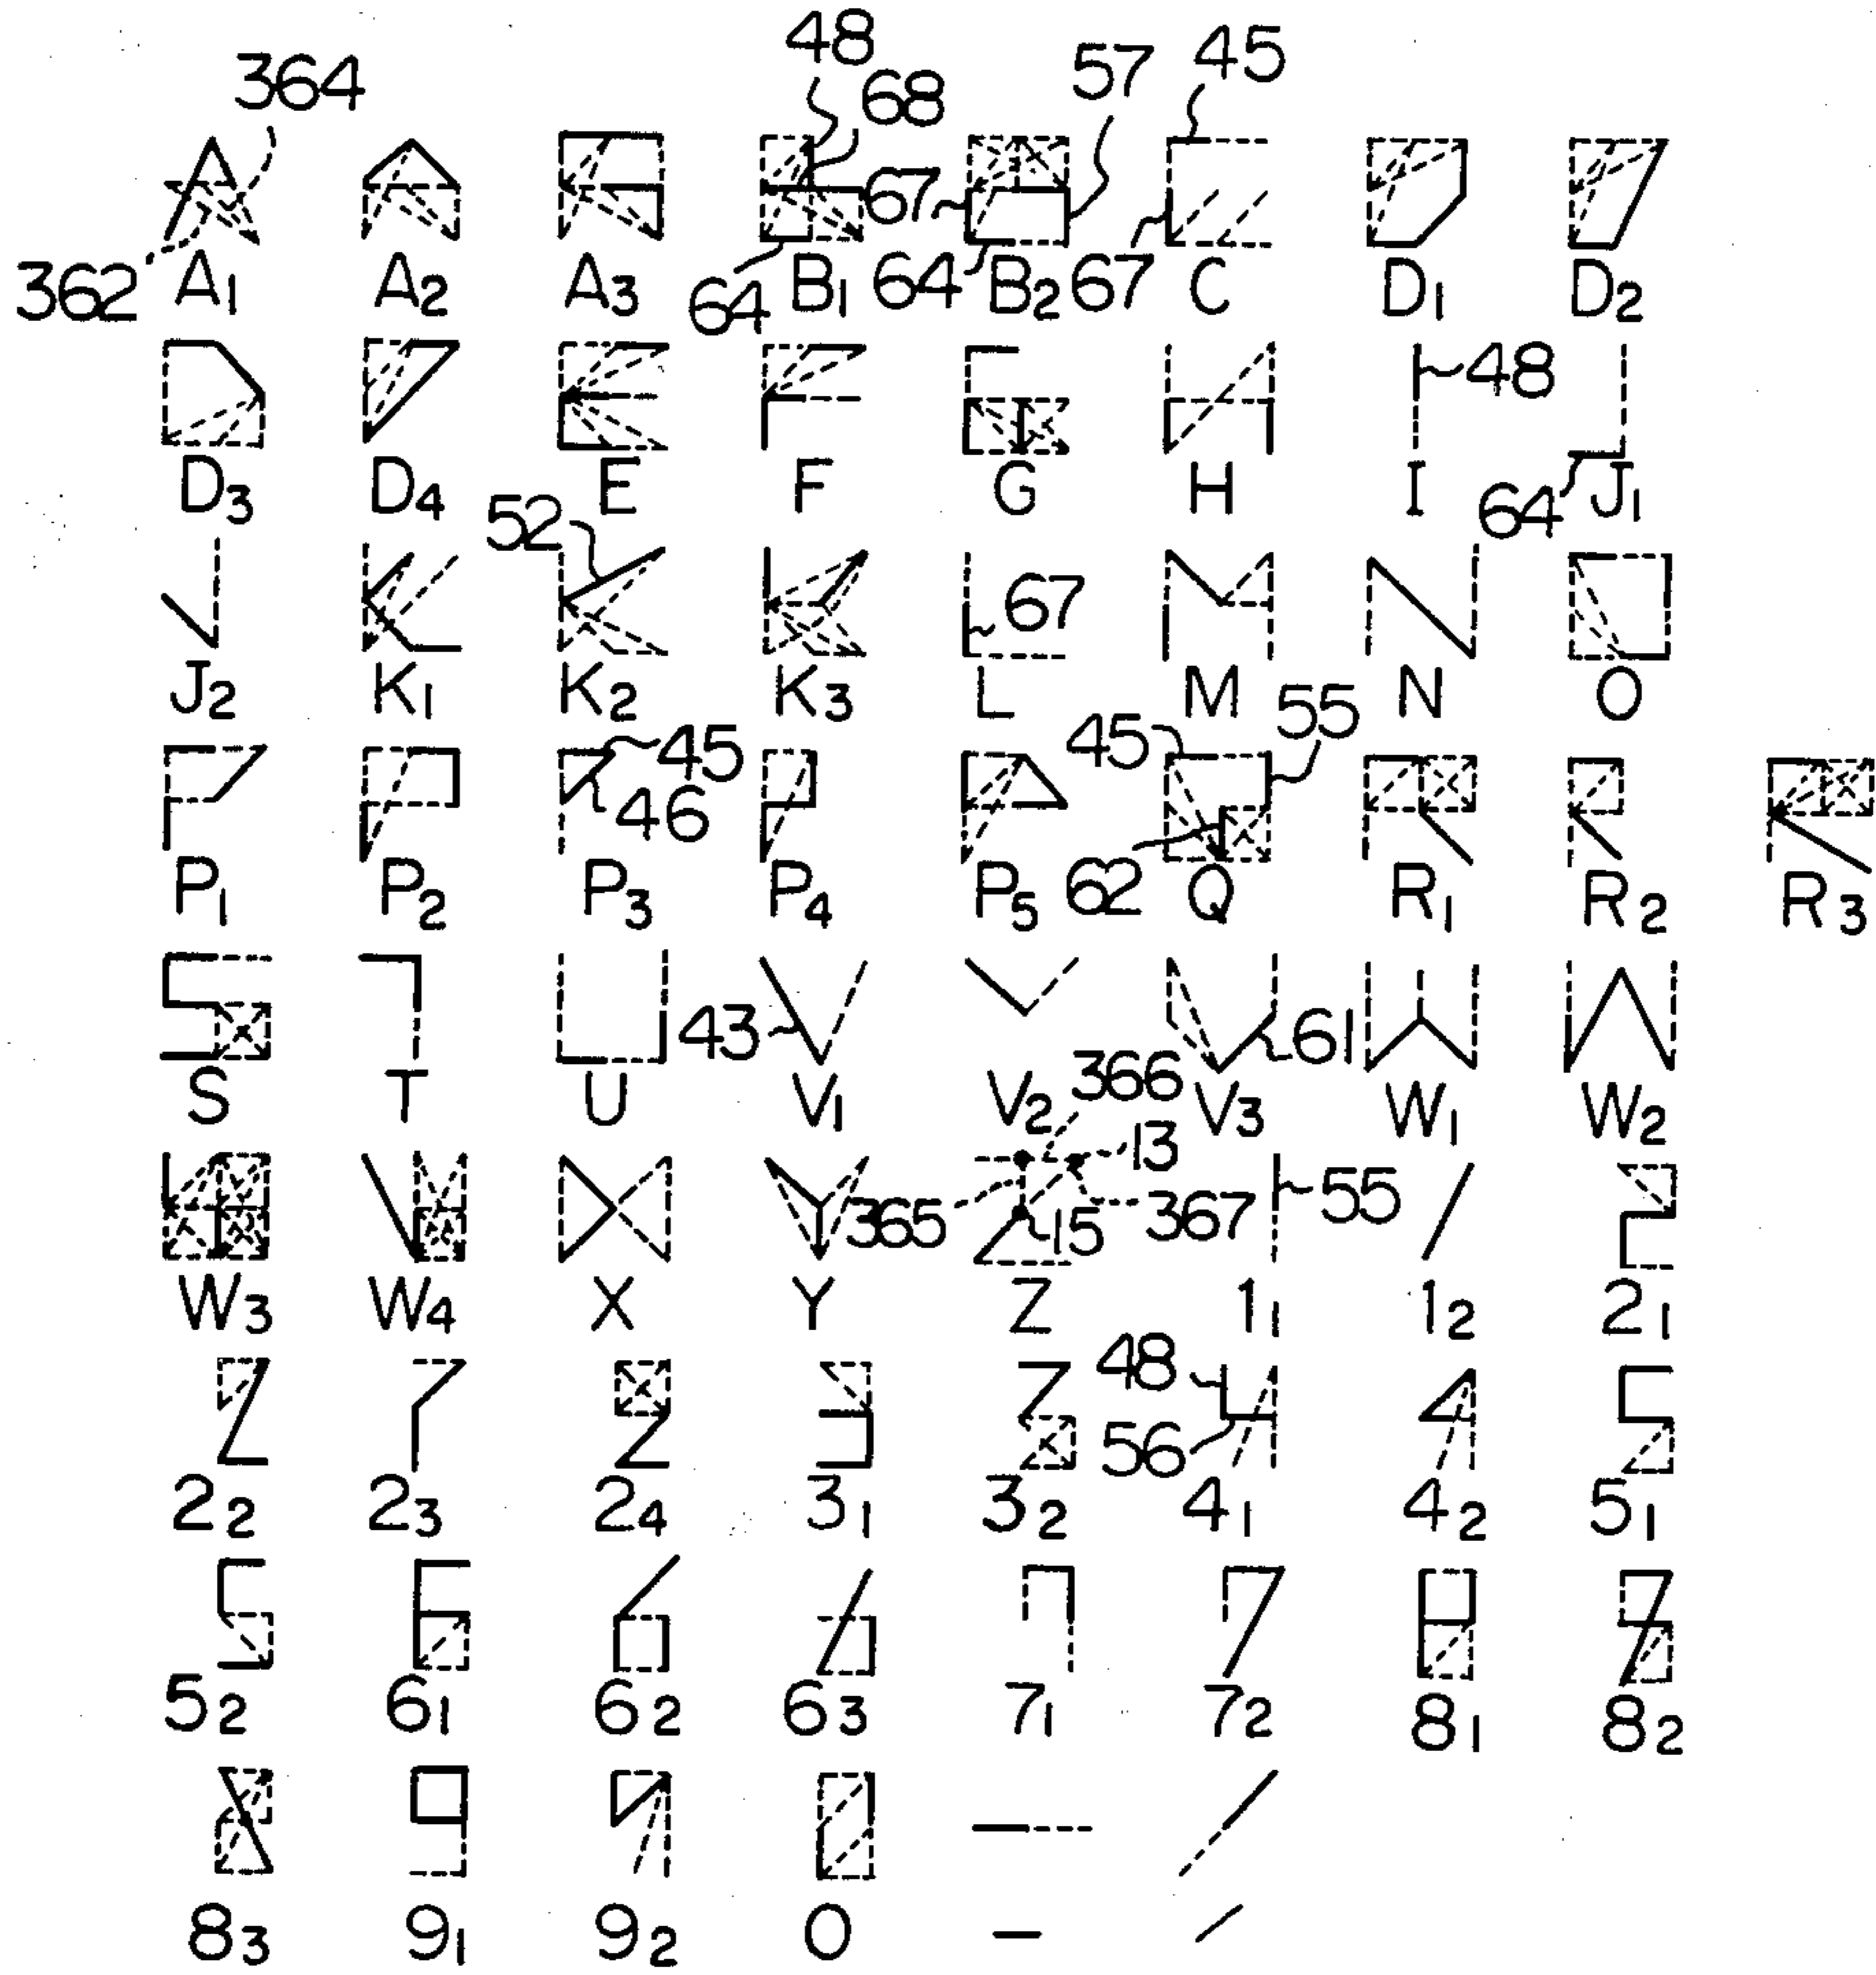 48
364 68 57 45
67
362 A1 A2 A3 64 B1 64 B2 67 C D1 D2
48
D3 D4 E F G H I 64 J1
52
67
J2 K1 K2 K3 L M N O
45 46 45 55
P1 P2 P3 P4 P5 62 Q R1 R2 R3
43 61
S T U V1 V2 366 V3 W1 W2
13
365 15 367 55
W3 W4 X Y Z 11 12 21
48
56
22 23 24 31 32 41 42 51
52 61 62 63 71 72 81 82
83 91 92 0 — /